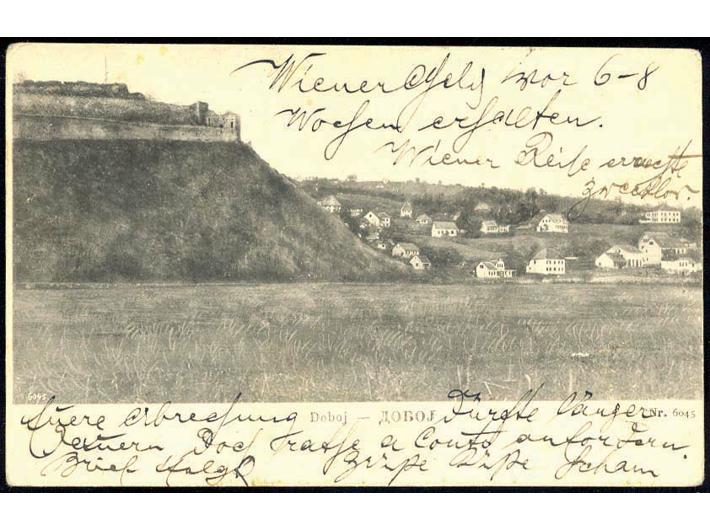 Wiener Geld vor 6-8
Wochen erhalten.
Wiener Reise
6045
Abrechnung Doboj — ДОБОЈ Dürfte länger Nr. 6045
Doch a Conto anfordern.
Brief folgt Grüße Küße